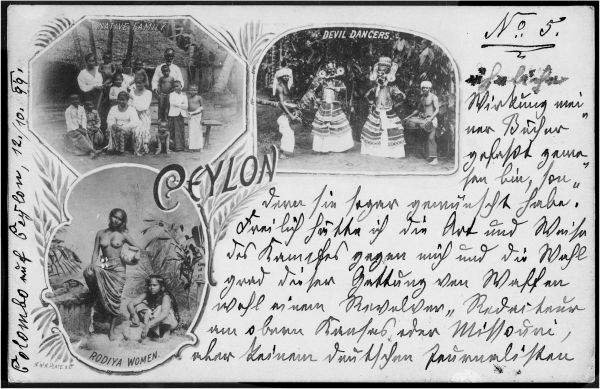 Nº 5.
NATIVE FAMILY
DEVIL DANCERS.
CEYLON
RODIYA WOMEN.
Colombo auf Ceylon, 12. 10. 99.
Wirkung mei
ner Bücher
gefaßt gewe=
sen bin, son„
dern sie sogar gewünscht habe.
Freilich hätte ich die Art und Weise
des Kampfes gegen mich und die Wahl
grad dieser Gattung von Waffen
wohl einem Revolver„ Redacteur
am obern Kansas oder Missouri,
aber keinem deutschen Journalisten